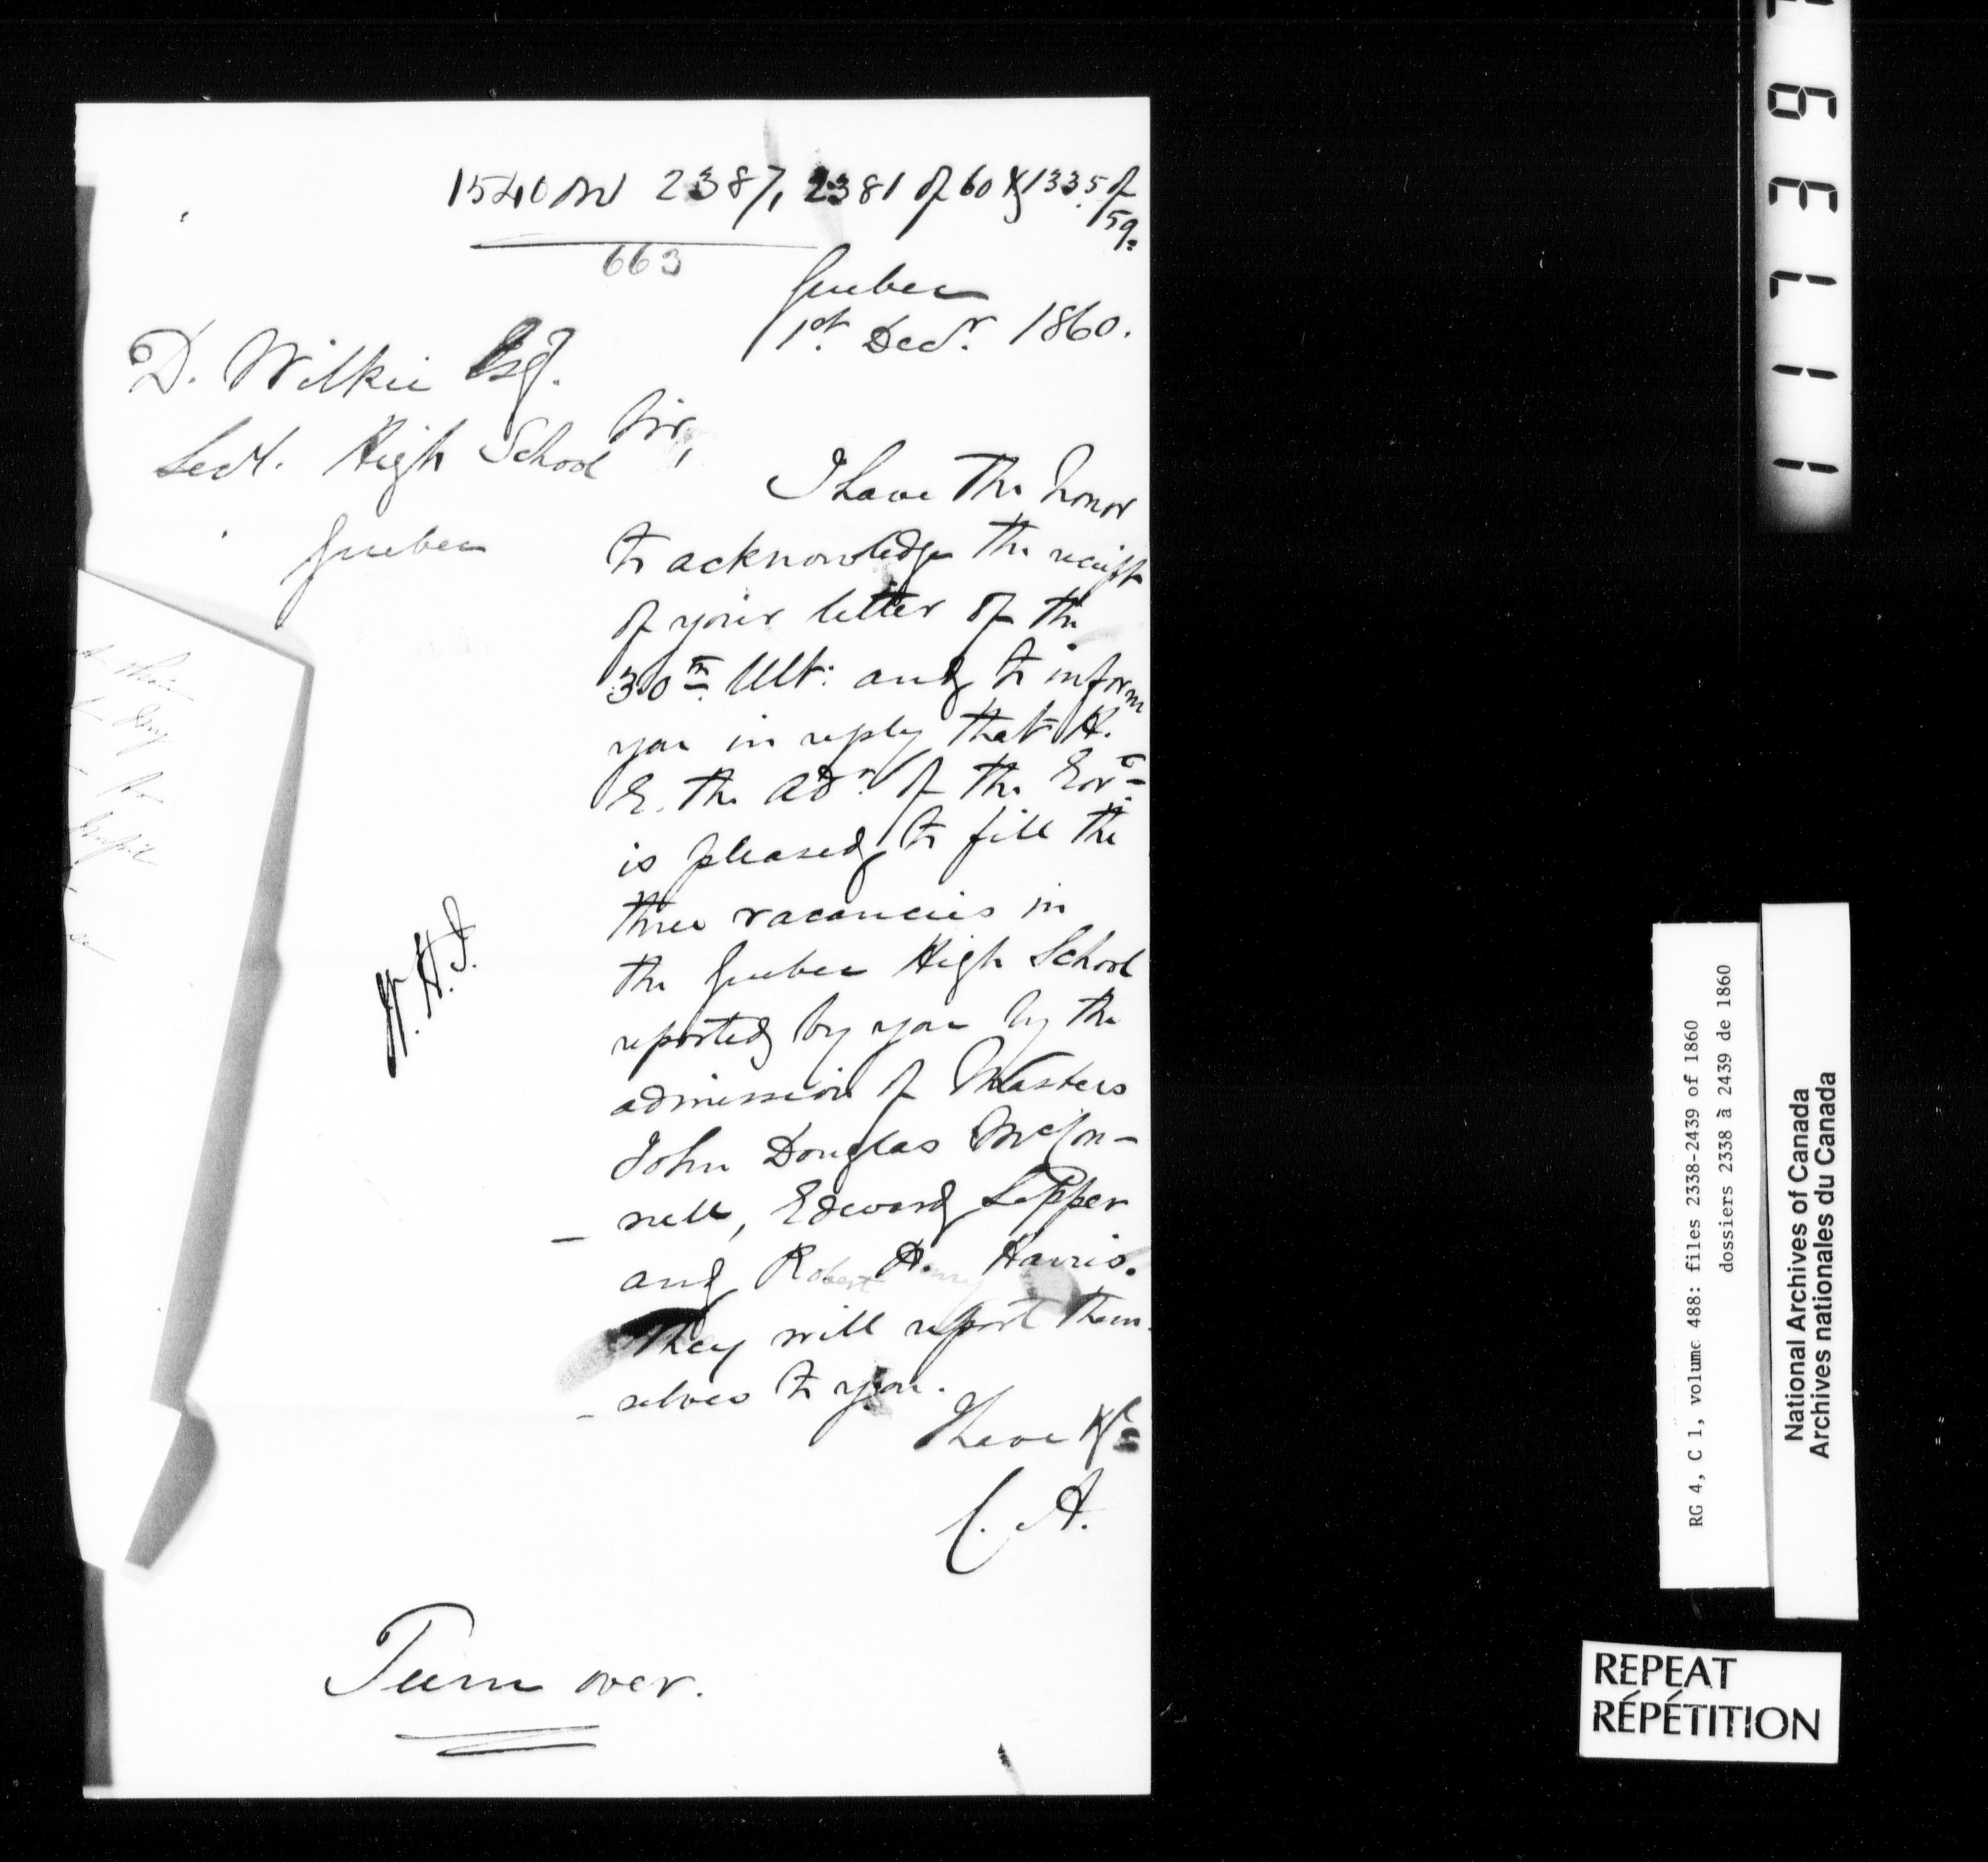 1540 on 2387, 2381 of 60 & 1335 of
59.
663
Quebec
1st Decr. 1860.
D. Wilkie Esq.
Secy. High School
Quebec
Sir,
I have the honor
to acknowledge the receipt
of your letter of the
30th Ult: and to inform
you in reply that H.
E. the Adr. of the Govt.
is pleased to fill the
three vacancies in
the Quebec High School
reported by you by the
admission of Masters
John Douglas McCon-
nell, Edward Lepper
and Robert Henry Harris.
They will report them-
selves to you.
I have &c
C. A.
Turn over.
11739
RG 4, C 1, volume 488: files 2338-2439 of 1860
dossiers 2338 à 2439 de 1860
National Archives of Canada
Archives nationales du Canada
REPEAT
RÉPÉTITION